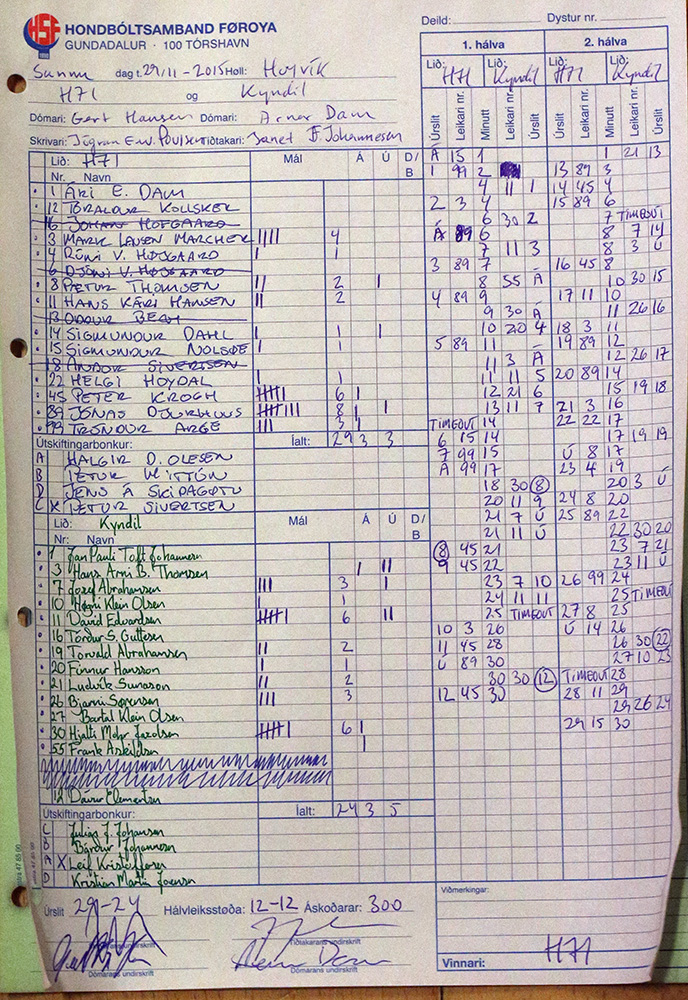 HSF HONDBÓLTSAMBAND FØROYA
GUNDADALUR · 100 TÓRSHAVN
Deild: Dystur nr.
Sunnu dag t. 29/11 - 2015 Høll: Hoyvík
H71 og Kyndil
Dómari: Gert Hansen Dómari: Arnar Dam
Skrivari: Jógvan Emv. Poulsen Tíðtakari: Janet F. Johannesen
1. hálva 2. hálva
Lið: H71 Lið: Kyndil Lið: H71 Lið: Kyndil
Úrslit Leikari nr. Minutt Leikari nr. Úrslit Úrslit Leikari nr. Minutt Leikari nr. Úrslit
Lið: H71 Mál Á Ú D/B
Nr. Navn
1 ÁRI E. DAM
12 TÓRALDUR KOLLSKER
16 JOHAN HOFGAARD
3 MARK LAUSEN MARCHER IIII 4
4 RÚNI V. HØJGAARD I 1
6 DJÓNI V. HØJGAARD
8 PÆTUR THOMSEN II 2 I
11 HANS KÁRI HANSEN II 2
13 ODDUR BECH
14 SIGMUNDUR DAHL I 1 I
15 SIGMUNDUR NOLSØE I 1
18 ANDUR SIVERTSEN
22 HELGI HOYDAL I 1
45 PETER KROGH IIIII I 6 I
89 JÓNAS DJURHUUS IIIII III 8 I I
99 TRÓNDUR ARGE III 3 I
Útskiftingarbonkur: Íalt: 29 3 3
A HALGIR D. OLESEN
B PÆTUR WITTÚN
D JENS Á SKIPAGØTU
C X PÆTUR SIVERTSEN
Lið: Kyndil Mál Á Ú D/B
Nr: Navn
1 Jan Pauli Toft Johannesen
3 Hans Arni B. Thomsen I II
7 Józef Abrahamsen III 3 I
10 Høgni Klein Olsen I 1
11 David Edvardsen IIIII I 6 II
16 Tórður S. Guttesen
19 Torvald Abrahamsen II 2
20 Finnur Hansson I 1
21 Ludvík Sunason II 2
26 Bjarni Sørensen III 3
27 Bartal Klein Olsen
30 Hjalti Mohr Jacobsen IIIII I 6 I
55 Frank Askildsen I
12 Dávur Clementsen
Útskiftingarbonkur: Íalt: 24 3 5
C Julian J. Johansen
B Bárður Johannesen
A X Leif Kristoffersen
D Kristian Martin Joensen
Á 15 1
1 99 2
4 11 1
2 3 4
6 30 2
Á 89 6
7 11 3
3 89 7
8 55 Á
4 89 9
9 30 Á
10 20 4
5 89 11
11 3 Á
11 11 5
12 21 6
13 11 7
TIMEOUT 14
6 15 14
7 99 15
Á 99 17
18 30 8
20 11 9
21 7 Ú
21 11 Ú
8 45 21
9 45 22
23 7 10
24 11 11
25 TIMEOUT
10 3 26
11 45 28
Ú 89 30
30 30 12
12 45 30
1 21 13
13 89 3
14 45 4
15 89 6
7 TIMEOUT
8 7 14
8 3 Ú
16 45 8
10 30 15
17 11 10
11 26 16
18 3 11
19 89 12
12 26 17
20 89 14
15 19 18
21 3 16
22 22 17
17 19 19
Ú 8 17
23 4 19
20 3 Ú
24 8 20
25 89 22
22 30 20
23 7 21
23 11 Ú
26 99 24
25 TIMEOUT
27 8 25
Ú 14 26
26 30 22
27 10 23
TIMEOUT 28
28 11 29
29 26 24
29 15 30
Úrslit 29-24 Hálvleiksstøða: 12-12 Áskoðarar: 300
Viðmerkingar:
Tíðtakarans undirskrift
Dómarans undirskrift Dómarans undirskrift
Vinnari: H71